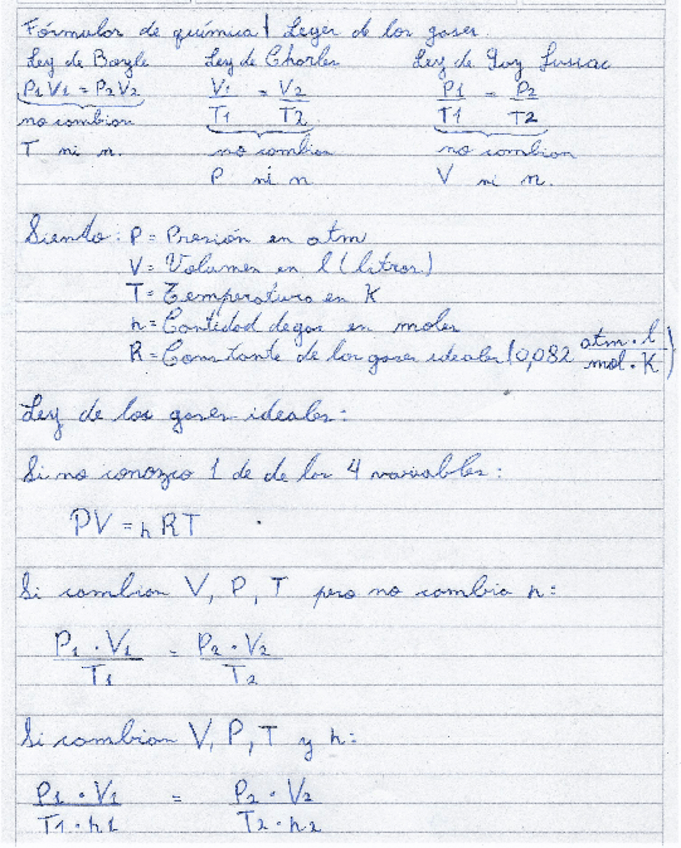 Fórmulas de química | Leyes de los gases.
Ley de Boyle Ley de Charles Ley de Gay Lussac
P1V1 = P2V2 V1/T1 = V2/T2 P1/T1 = P2/T2
no cambian no cambian no cambian
T ni n. P ni n V ni n.
Siendo: P = Presión en atm
V = Volumen en l (litros)
T = Temperatura en K
n = Cantidad de gas en moles
R = Constante de los gases ideales (0,082 atm·l/mol·K)
Ley de los gases ideales:
Si no conozco 1 de de las 4 variables:
PV = nRT
Si cambian V, P, T pero no cambia n:
P1·V1/T1 = P2·V2/T2
Si cambian V, P, T y n:
P1·V1/T1·n1 = P2·V2/T2·n2